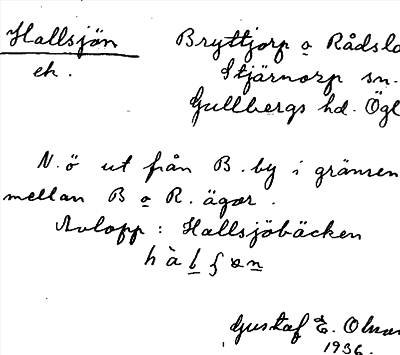 Hallsjön Bryttjorp o Rådslo
ek. Stjärnorp sn.
Gullbergs hd. Ögl
N. ö ut från B. by i gränsen
mellan B o R. ägor.
Avlopp: Hallsjöbäcken
Gustaf E. Olson
1936.